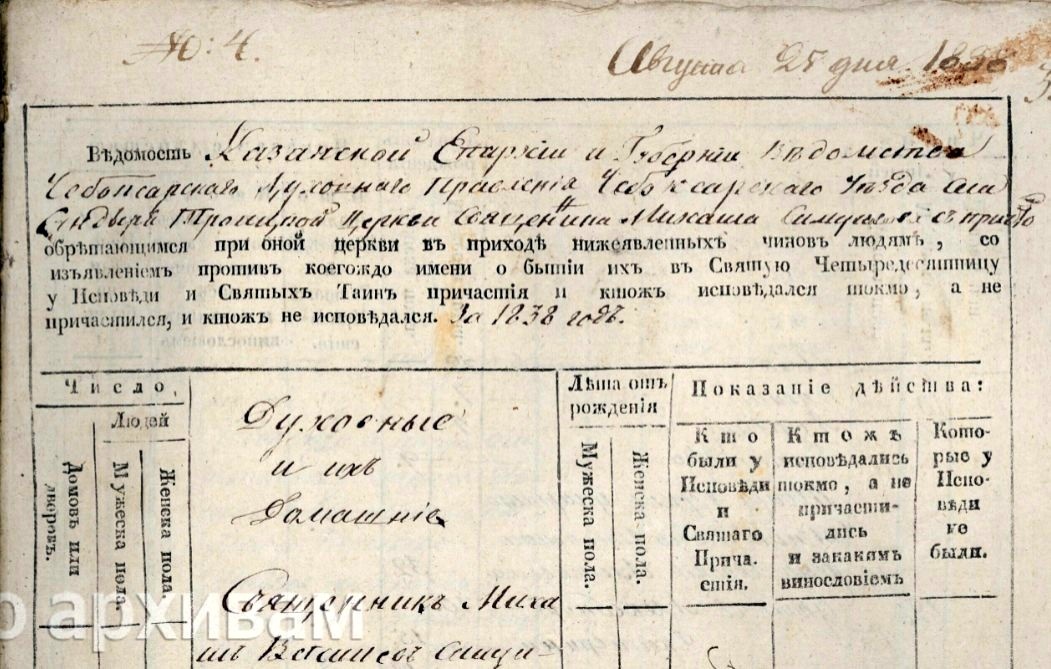 №: 4.
Августа 25 дня 1838
Вѣдомость Казанской Епархіи и Губерніи Вѣдомства
Чебоксарскаго Духовнаго Правленія Чебоксарскаго Уѣзда села
Троицкой Церкви Священника Михаила
обрѣтающимся при оной церкви въ приходѣ нижеявленныхъ чиновъ людямъ, со
изъявленіемъ противъ коегождо имени о бытіи ихъ въ Святую Четыредесятницу
у Исповѣди и Святыхъ Таинъ причастія и ктожъ исповѣдался токмо, а не
причастился, и ктожъ не исповѣдался. За 1838 годъ.
Число,
Людей
Домовъ или дворовъ.
Мужеска пола.
Женска пола.
Духовные
и ихъ
домашніе
Священникъ Миха
илъ
Лѣта отъ
рожденія
Мужеска пола.
Женска пола.
Показаніе дѣйства:
Кто
были у
Исповѣди
и
Святаго
Прича.
стія.
Ктожъ
исповѣдались
токмо, а не
причасти-
лись
и закакимъ
винословіемъ
Кото-
рые у
Испо-
вѣди
не
были.
о архивам